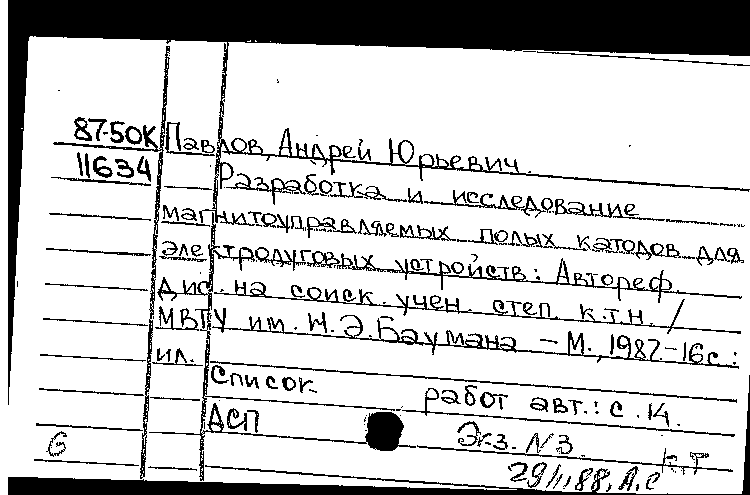 87-50К Павлов, Андрей Юрьевич.
11634 Разработка и исследование
магнитоуправляемых полых катодов для
электродуговых устройств: Автореф.
дис. на соиск. учен. степ. к.т.н. /
МВТУ им. Н.Э.Баумана - М., 1987-16с.:
ил.
Список работ авт.: с. 14.
ДСП Экз. N3.
6 к.т
29/1,88, А.С